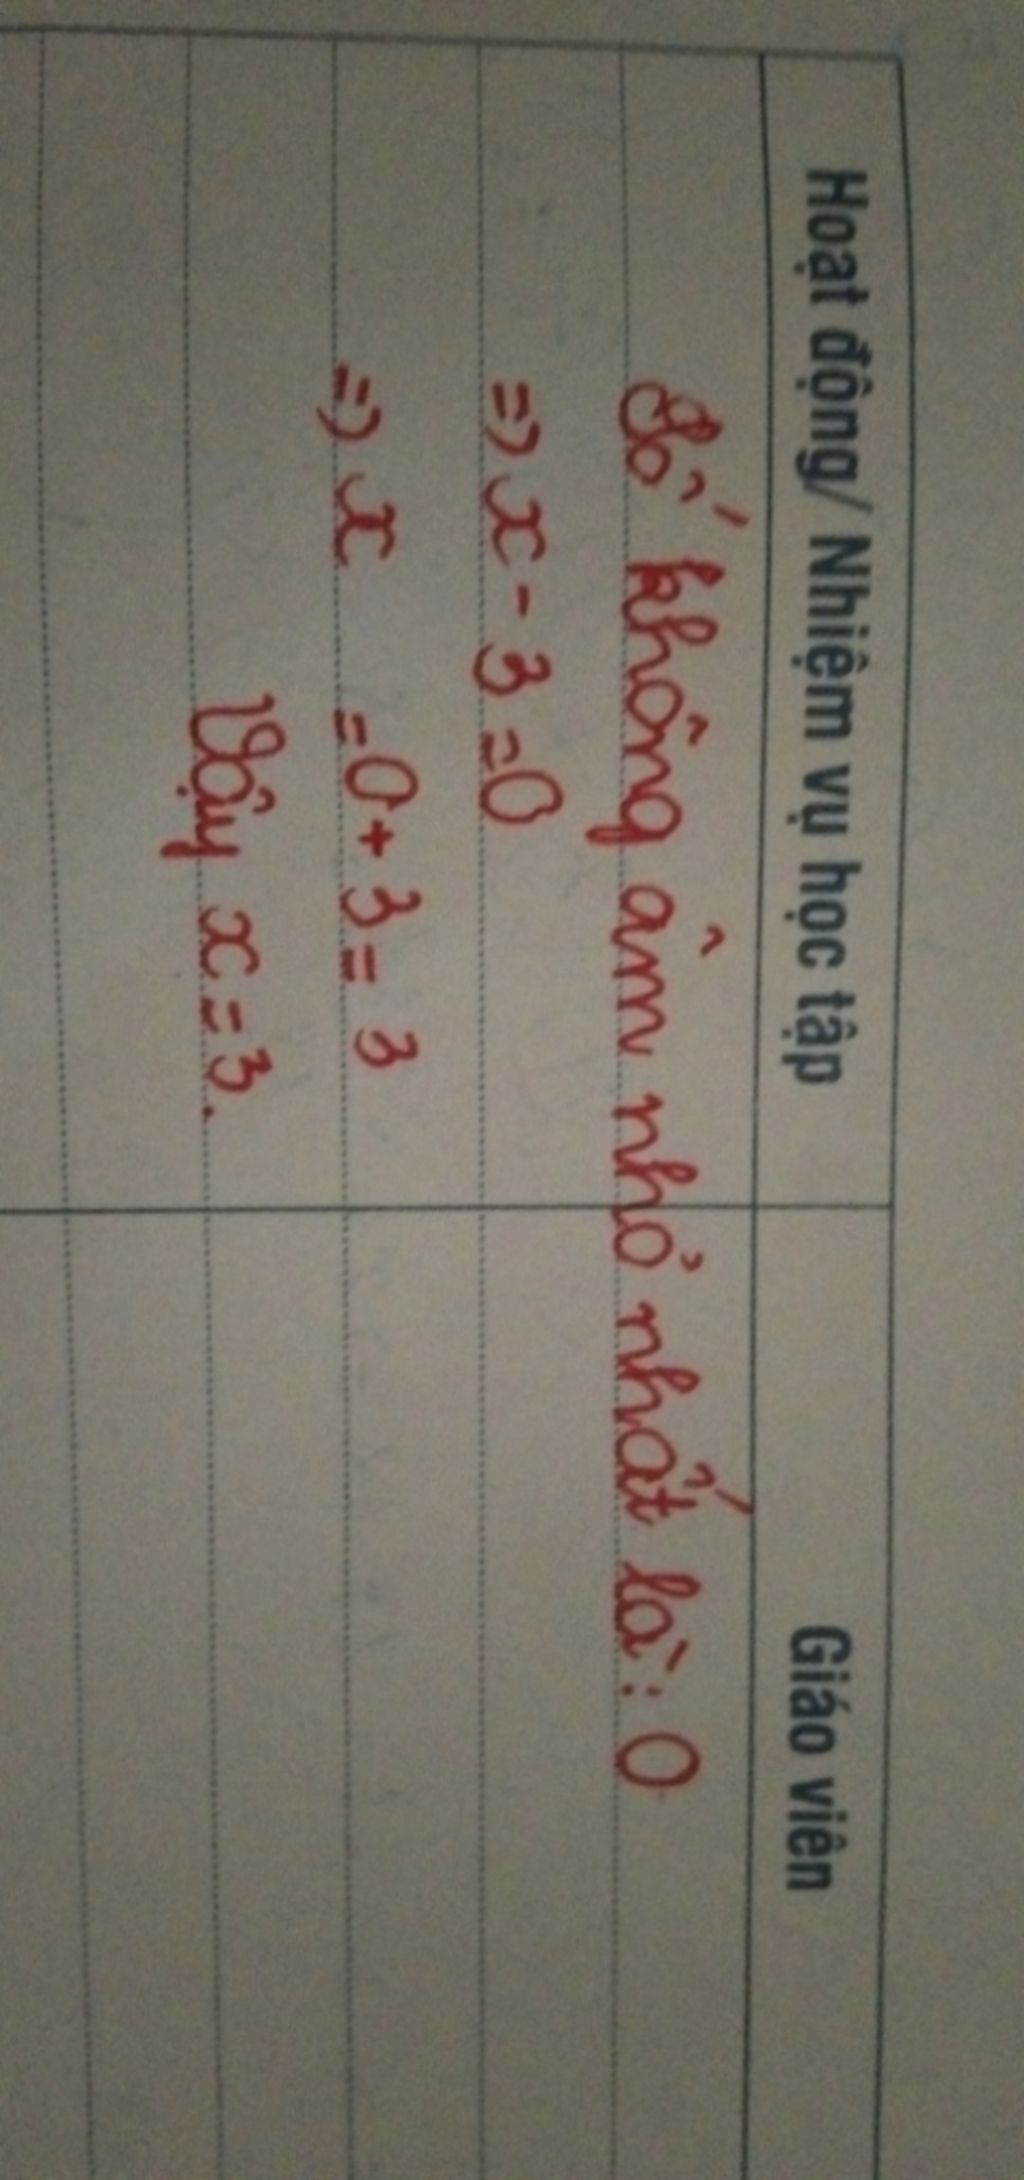 Hoạt động/ Nhiệm vụ học tập Giáo viên
Số không âm nhỏ nhất là: 0
=> x - 3 = 0
=> x = 0 + 3 = 3
Vậy x = 3.